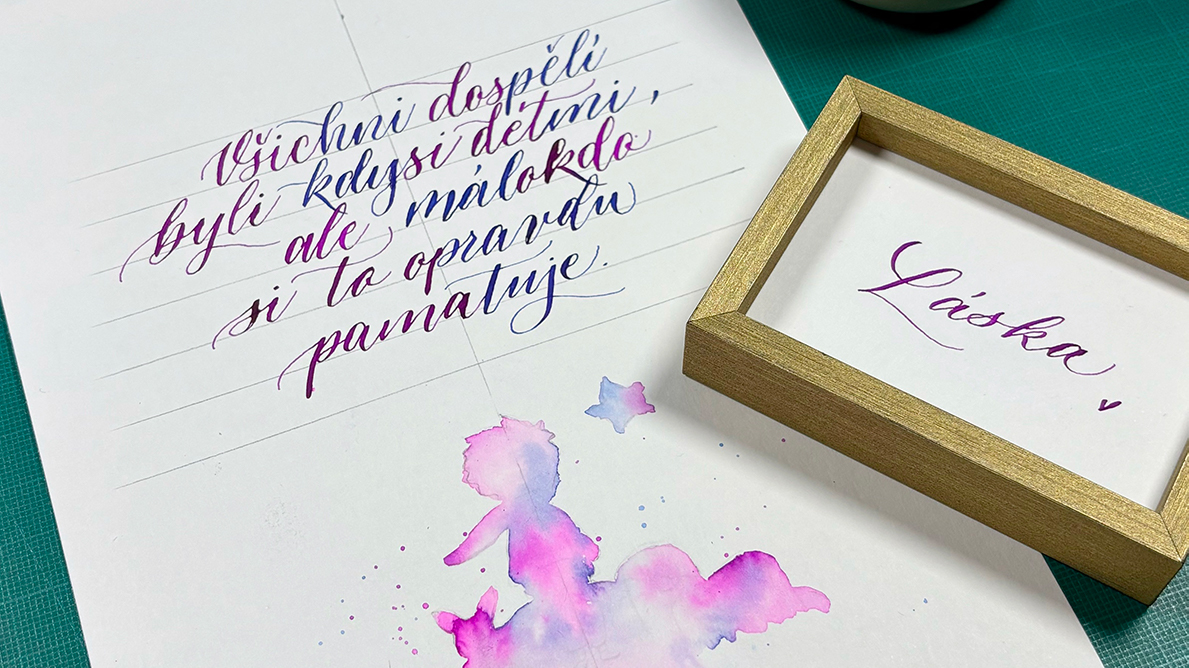 Všichni dospělí
byli kdysi dětmi,
ale málokdo
si to opravdu
pamatuje.
Láska